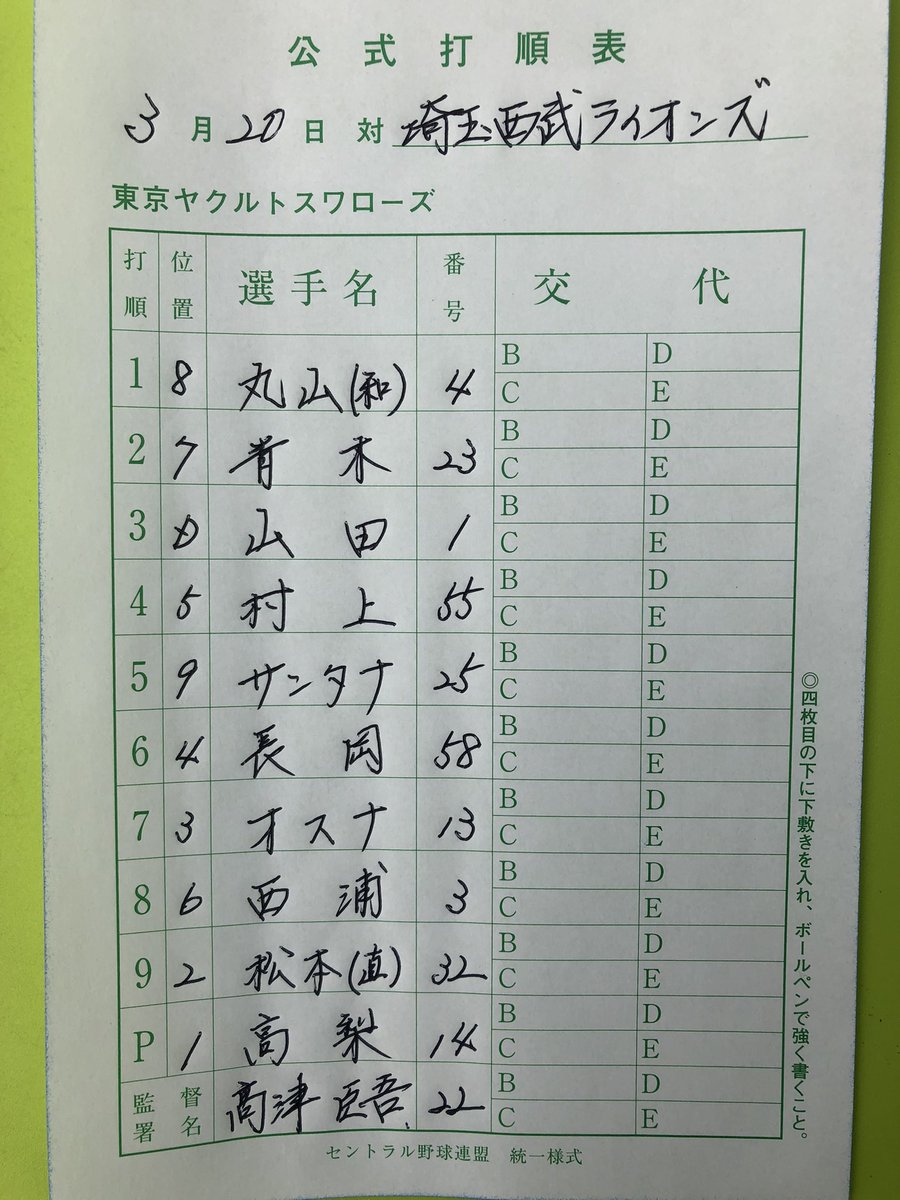 公式打順表
3月20日 対 埼玉西武ライオンズ
東京ヤクルトスワローズ
打順 位置 選手名 番号 交代
1 8 丸山(和) 4 B D C E
2 7 青木 23 B D C E
3 D 山田 1 B D C E
4 5 村上 55 B D C E
5 9 サンタナ 25 B D C E
6 4 長岡 58 B D C E
7 3 オスナ 13 B D C E
8 6 西浦 3 B D C E
9 2 松本(直) 32 B D C E
P 1 高梨 14 B D C E
監督署名 髙津臣吾 22 B D C E
◎四枚目の下に下敷きを入れ、ボールペンで強く書くこと。
セントラル野球連盟 統一様式